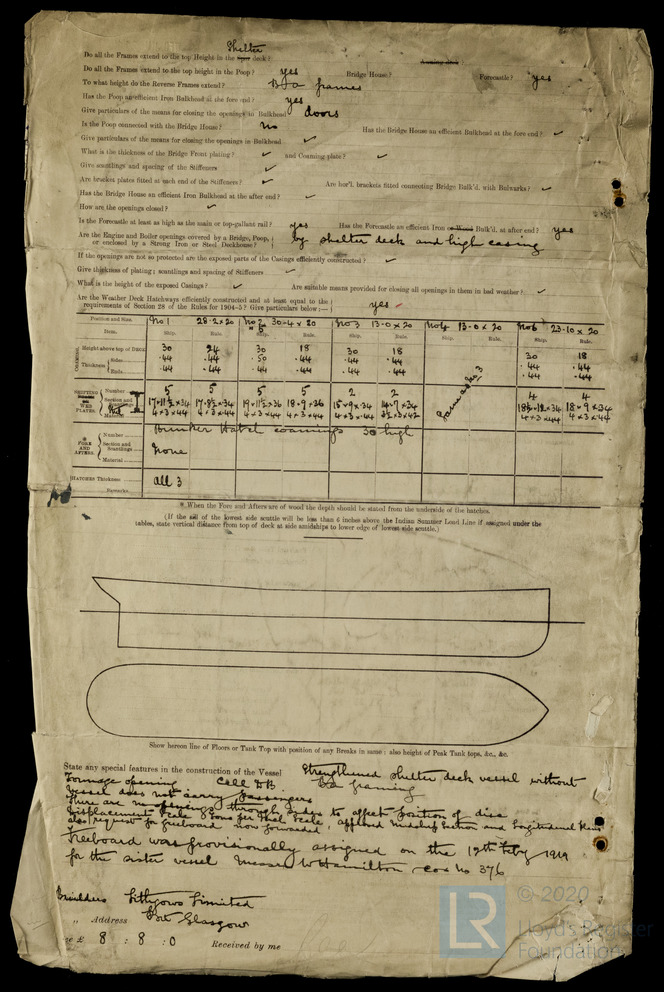 Shelter
Do all the Frames extend to the top Height in the deck?
Do all the Frames extend to the top height in the Poop? yes Bridge House? Forecastle? yes
To what height do the Reverse Frames extend? BA frames
Has the Poop an efficient Iron Bulkhead at the fore end? yes
Give particulars of the means for closing the openings in Bulkhead doors
Is the Poop connected with the Bridge House? No Has the Bridge House an efficient Bulkhead at the fore end? ✓
Give particulars of the means for closing the openings in Bulkhead ✓
What is the thickness of the Bridge Front plating? ✓ and Coaming plate? ✓
Give scantlings and spacing of the Stiffeners ✓
Are bracket plates fitted at each end of the Stiffeners? ✓ Are hor'l. brackets fitted connecting Bridge Bulk'd. with Bulwarks? ✓
Has the Bridge House an efficient Iron Bulkhead at the after end? ✓
How are the openings closed? ✓
Is the Forecastle at least as high as the main or top-gallant rail? yes Has the Forecastle an efficient Iron Bulk'd. at after end? yes
Are the Engine and Boiler openings covered by a Bridge, Poop,
or enclosed by a Strong Iron or Steel Deckhouse? by shelter deck and high casing
If the openings are not so protected are the exposed parts of the Casings efficiently constructed? ✓
Give thickness of plating; scantlings and spacing of Stiffeners ✓
What is the height of the exposed Casings? ✓ Are suitable means provided for closing all openings in them in bad weather? ✓
Are the Weather Deck Hatchways efficiently constructed and at least equal to the
requirements of Section 28 of the Rules for 1904-5? Give particulars below:— yes
Position and Size. No 1 28·2 x 20 No 2 30·4 x 20 No 3 13·0 x 20 No 4 13·0 x 20 No 5 23·10 x 20
Item. Ship. Rule. Ship. Rule. Ship. Rule. Ship. Rule. Ship. Rule.
COAMING
Height above top of DECK 30 24 30 18 30 18 30 18
Thickness Sides .44 .44 .50 .44 .44 .44 .44 .44
Ends .44 .44 .44 .44 .44 .44 .44 .44
Same as No 3
SHIFTING
OR
WEB
PLATES.
Number 5 5 5 5 2 2 4 4
Section and
Material
Bunker Hatch coamings 30 high
FORE
AND
AFTERS.
Number
Section and
Scantlings None
Material
HATCHES Thickness All 3
Remarks
* When the Fore and Afters are of wood the depth should be stated from the underside of the hatches.
(If the sill of the lowest side scuttle will be less than 6 inches above the Indian Summer Load Line if assigned under the
tables, state vertical distance from top of deck at side amidships to lower edge of lowest side scuttle.)
Show hereon line of Floors or Tank Top with position of any Breaks in same: also height of Peak Tank tops, &c., &c.
State any special features in the construction of the Vessel Strengthened shelter deck vessel without
Tonnage opening Cell DB. BA framing
Vessel does not carry passengers
There are no openings through sides to affect position of disc
Displacement Scale & Tons per Inch Scale, approved Midship Section and Longitudinal Plans
also request for freeboard now forwarded
Freeboard was provisionally assigned on the 12th Feby 1919
for the sister vessel Messrs W Hamilton & Cos No 376
Builders Lithgows Limited
„ Address Port Glasgow
£ 8 : 8 : 0 Received by me
LR
© 2020
Lloyd's Register
Foundation